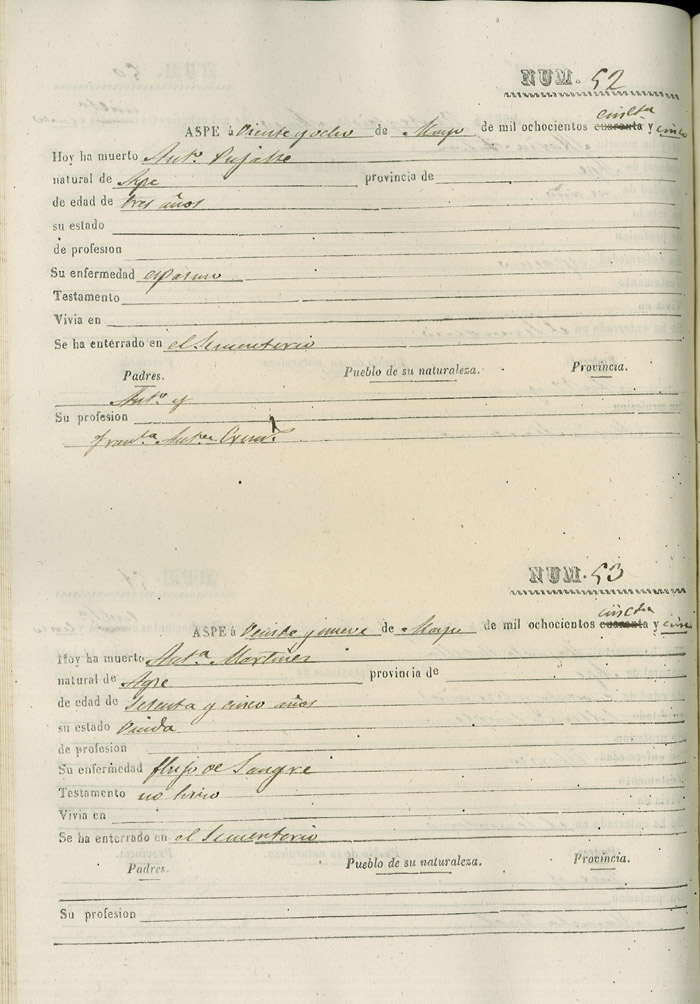 NUM. 52
cincta
ASPE á Veinte y ocho de Mayo de mil ochocientos cuarenta y cinco
Hoy ha muerto Anto.
natural de Aspe provincia de
de edad de tres años
su estado
de profesion
Su enfermedad espasmo
Testamento
Vivia en
Se ha enterrado en el Sementerio
Padres. Pueblo de su naturaleza. Provincia.
Anto. y
Su profesion
Franca.
NUM. 53
cincta
ASPE á Veinte y nueve de Mayo de mil ochocientos cuarenta y cinco
Hoy ha muerto Anta. Martines
natural de Aspe provincia de
de edad de setenta y cinco años
su estado Viuda
de profesion
Su enfermedad flujo de Sangre
Testamento no hiso
Vivia en
Se ha enterrado en el Sementerio
Padres. Pueblo de su naturaleza. Provincia.
Su profesion